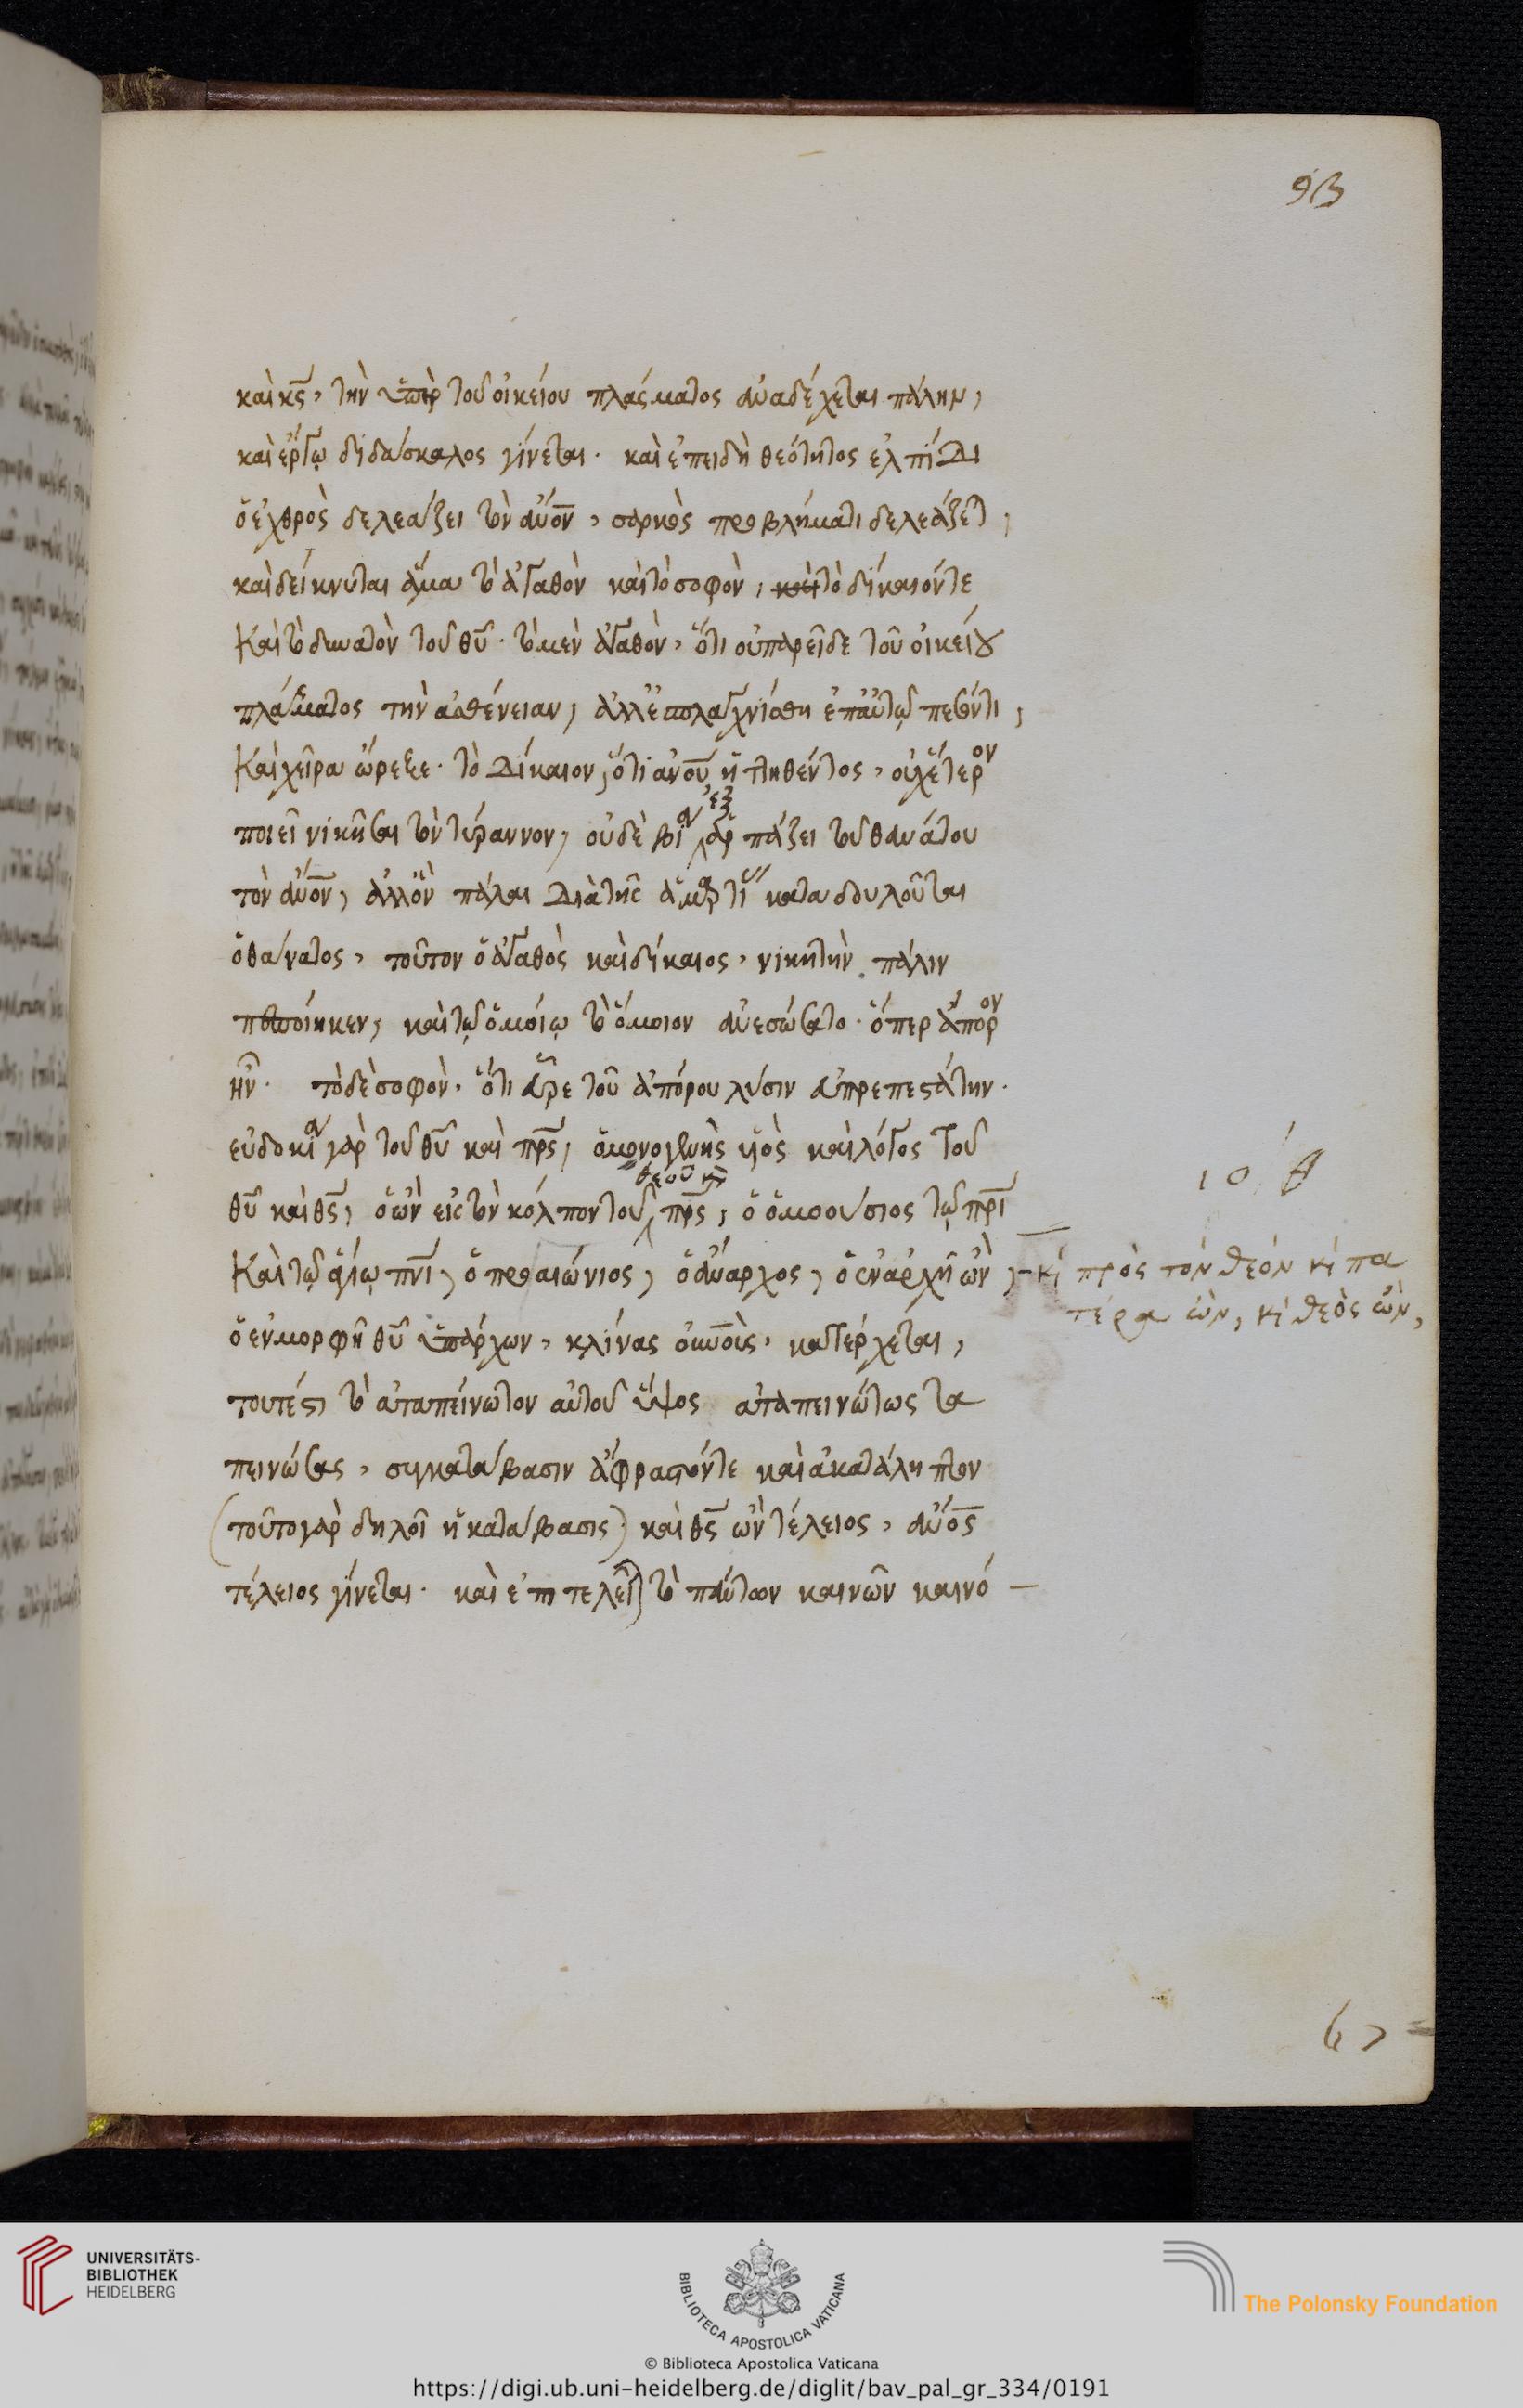 93
καὶ κς̅, τὴν ὑπὲρ τοῦ οἰκείου πλάσματος ἀναδέχεται πάλην,
καὶ ἔργῳ διδάσκαλος γίνεται. καὶ ἐπειδὴ θεότητος ἐλπίδι
ὁ ἐχθρὸς δελεάζει τὸν ἄνον̅, σαρκὸς προβλήματι δελεάζετ,
καὶ δείκνυται ἅμα τὸ ἀγαθὸν καὶ τὸ σοφὸν, καὶ τὸ δίκαιόν τε
καὶ τὸ δυνατὸν τοῦ θυ̅. τὸ μὲν ἀγαθὸν, ὅτι οὐ παρεῖδε τοῦ οἰκείου
πλάσματος τὴν ἀσθένειαν, ἀλλ' ἐσπλαγχνίσθη ἐπ' αὐτῷ πεσόντι,
καὶ χεῖρα ὤρεξε. τὸ δίκαιον, ὅτι ἀνου̅ ἡττηθέντος, οὐχ ἕτερον
ποιεῖ νικῆσαι τὸν τύραννον, οὐδὲ βίᾳ ἐξαρπάζει τοῦ θανάτου
τὸν ἄνον̅, ἀλλ' ὃν πάλαι διὰ τῆς ἁμαρτίας καταδουλοῦται
ὁ θάνατος, τοῦτον ὁ ἀγαθὸς καὶ δίκαιος, νικητὴν πάλιν
πεποίηκεν, καὶ τῷ ὁμοίῳ τὸ ὅμοιον ἀνεσώσατο. ὅπερ ἄπορον
ἦν. τὸ δὲ σοφὸν, ὅτι εὗρε τοῦ ἀπόρου λύσιν εὐπρεπεστάτην.
εὐδοκίᾳ γὰρ τοῦ θυ̅ καὶ πρς̅, ὁ μονογενὴς υἱὸς καὶ λόγος τοῦ
θυ̅ καὶ θς̅, ὁ ὢν εἰς τὸν κόλπον τοῦ θεοῦ καὶ πρς̅, ὁ ὁμοούσιος τῷ πρι̅
καὶ τῷ ἁγίῳ πνι̅, ὁ προαιώνιος, ὁ ἄναρχος, ὁ ἐν ἀρχῇ ὢν,
καὶ πρὸς τὸν θεὸν καὶ πα
τέρα ὢν, καὶ θεὸς ὢν,
ὁ ἐν μορφῇ θυ̅ ὑπάρχων, κλίνας οὐνοὺς̅, κατέρχεται,
τουτέστι τὸ ἀταπείνωτον αὐτοῦ ὕψος ἀταπεινώτως τα
πεινώσας, συγκατάβασιν ἄφραστόν τε καὶ ἀκατάληπτον
(τοῦτο γὰρ δηλοῖ ἡ κατάβασις) καὶ θς̅ ὢν τέλειος, ἄνος̅
τέλειος γίνεται. καὶ ἐπιτελεῖται τὸ πάντων καινῶν καινό —
UNIVERSITÄTS-
BIBLIOTHEK
HEIDELBERG
BIBLIOTECA APOSTOLICA VATICANA
The Polonsky Foundation
© Biblioteca Apostolica Vaticana
https://digi.ub.uni-heidelberg.de/diglit/bav_pal_gr_334/0191